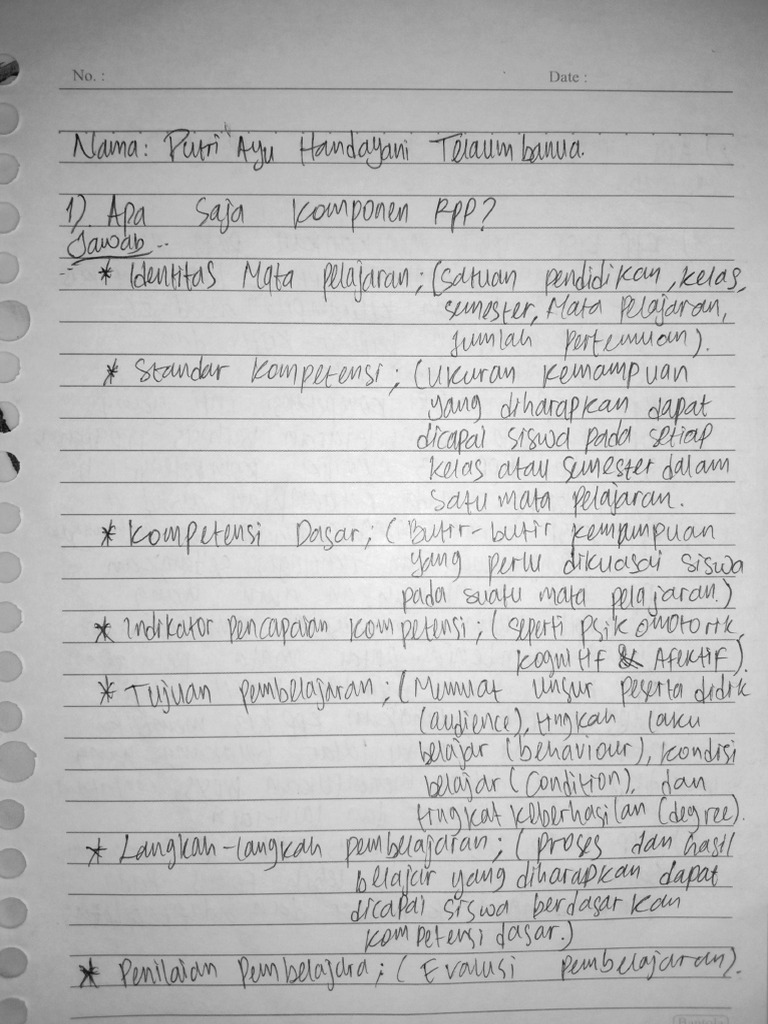 No. :
Date :
Nama: Putri Ayu Handayani Telaumbanua.
1). Apa Saja Komponen RPP?
Jawab
* Identitas Mata pelajaran; (satuan pendidikan, kelas,
semester, Mata Pelajaran,
jumlah pertemuan).
* Standar Kompetensi; (Ukuran kemampuan
yang diharapkan dapat
dicapai siswa pada setiap
kelas atau semester dalam
satu mata pelajaran.
* Kompetensi Dasar; (Butir-butir kemampuan
yang perlu dikuasai siswa
pada suatu mata pelajaran.)
* Indikator pencapaian kompetensi; (seperti psikomotorik,
kognitif & Afektif).
* Tujuan pembelajaran; (Memuat unsur peserta didik
(audience), tingkah laku
belajar (behaviour), kondisi
belajar (Condition), dan
tingkat keberhasilan (degree).
* Langkah-langkah pembelajaran; (proses dan hasil
belajar yang diharapkan dapat
dicapai siswa berdasarkan
kompetensi dasar.)
* Penilaian Pembelajara; (Evalusi pembelajaran).